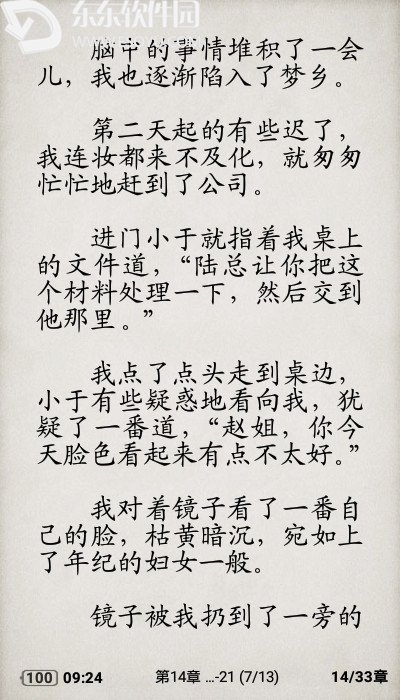 东东软件园
脑中的事情堆积了一会
儿，我也逐渐陷入了梦乡。
第二天起的有些迟了，
我连妆都来不及化，就匆匆
忙忙地赶到了公司。
进门小于就指着我桌上
的文件道，“陆总让你把这
个材料处理一下，然后交到
他那里。”
我点了点头走到桌边，
小于有些疑惑地看向我，犹
疑了一番道，“赵姐，你今
天脸色看起来有点不太好。”
我对着镜子看了一番自
己的脸，枯黄暗沉，宛如上
了年纪的妇女一般。
镜子被我扔到了一旁的
100 09:24 第14章 …-21 (7/13) 14/33章